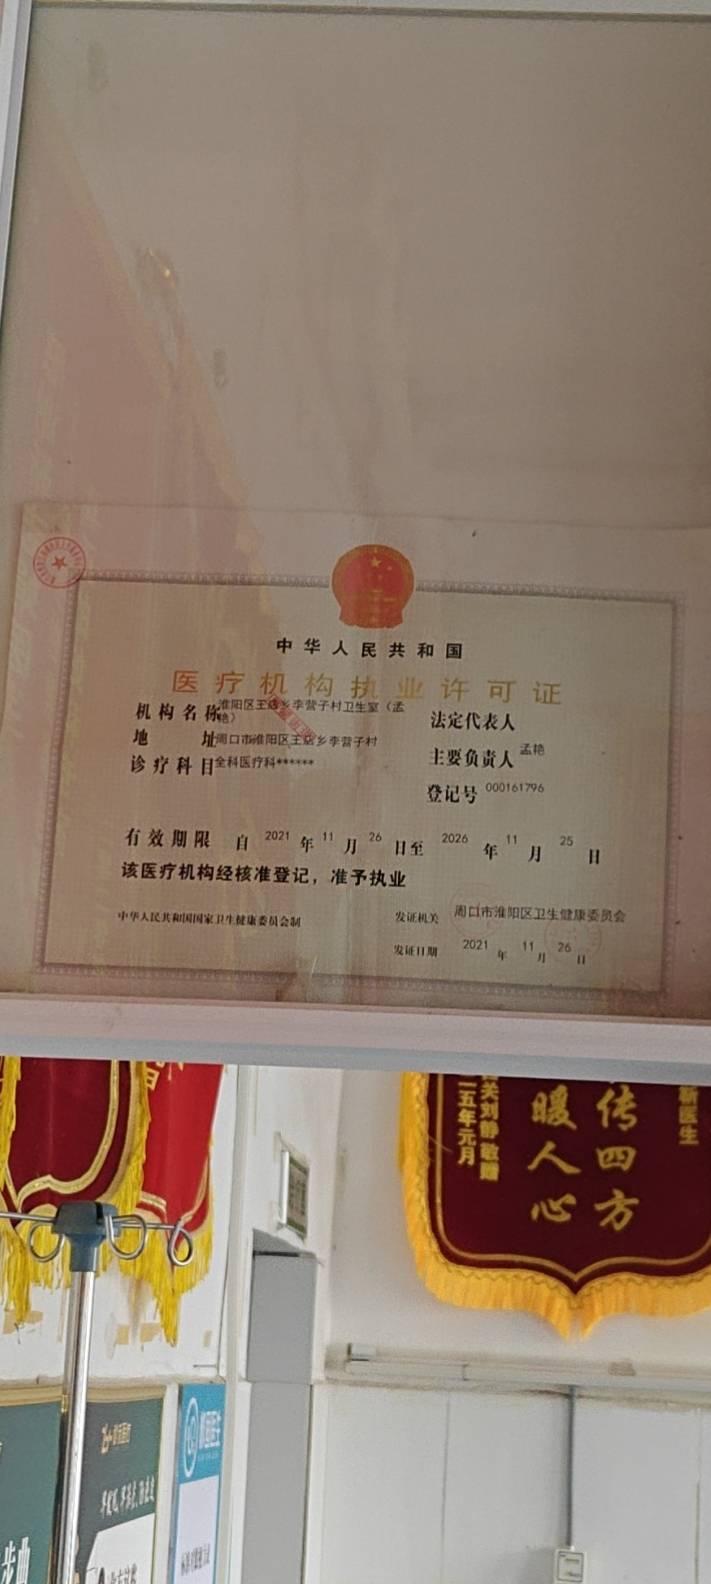 中华人民共和国
医疗机构执业许可证
机构名称 淮阳区王店乡李营子村卫生室（孟艳）
法定代表人
地址 周口市淮阳区王店乡李营子村
主要负责人 孟艳
诊疗科目 全科医疗科******
登记号 000161796
有效期限 自 2021 年 11 月 26 日至 2026 年 11 月 25 日
该医疗机构经核准登记，准予执业
中华人民共和国国家卫生健康委员会制
发证机关 周口市淮阳区卫生健康委员会
发证日期 2021 年 11 月 26 日
新医生
传四方
暖人心
关刘静敬赠
二五年元月
步曲